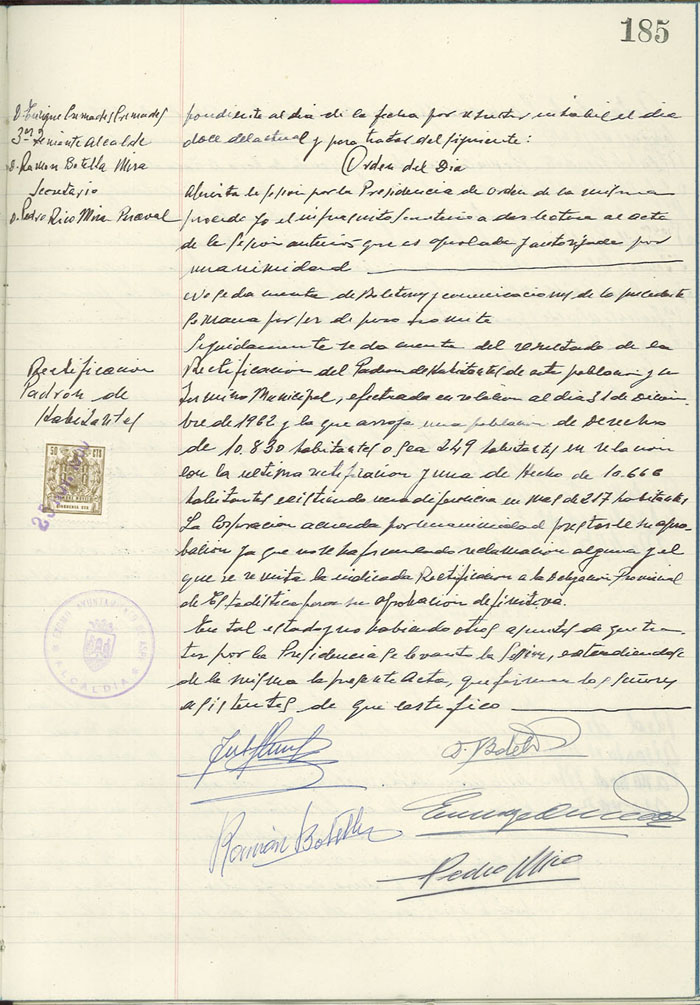 185
D. Enrique Cremades Cremades
3er Teniente Alcalde
D. Ramon Botella Mira
Secretario
D. Pedro Rico Mira Perceval
pondiente al dia de la fecha por resultar inhabil el dia
doce del actual y para tratar del siguiente:
Orden del Dia
Abierta la sesion por la Presidencia de orden de la misma
procedo yo el infrascrito Secretario a dar lectura al acta
de la sesion anterior que es aprobada y autorizada por
unanimidad
No se da cuenta de Boletines y comunicaciones de la precedente
semana por ser de puro tramite
Rectificacion
Padrón de
Habitantes
Seguidamente se da cuenta del resultado de la
Rectificacion del Padron de Habitantes de esta poblacion y su
Termino Municipal, efectuada en relacion al dia 31 de Diciem-
bre de 1962 y la que arroja una poblacion de Derecho
de 10.830 habitantes o sea 249 habitantes en relacion
con la ultima rectificacion y una de Hecho de 10.666
habitantes existiendo una diferencia en mas de 217 habitantes
La Corporacion acuerda por unanimidad prestarle su apro-
bacion ya que no se ha formulado reclamacion alguna y el
que se remita la indicada Rectificacion a la Delegacion Provincial
de Estadistica para su aprobacion definitiva.
50 CTS
ALCALDIA
En tal estado y no habiendo otros asuntos de que tra-
tar por la Presidencia se levanta la Sesion, extendiendose
de la misma la presente Acta, que firman los señores
asistentes de que certifico
D. Botella
Ramón Botella
Pedro Mira